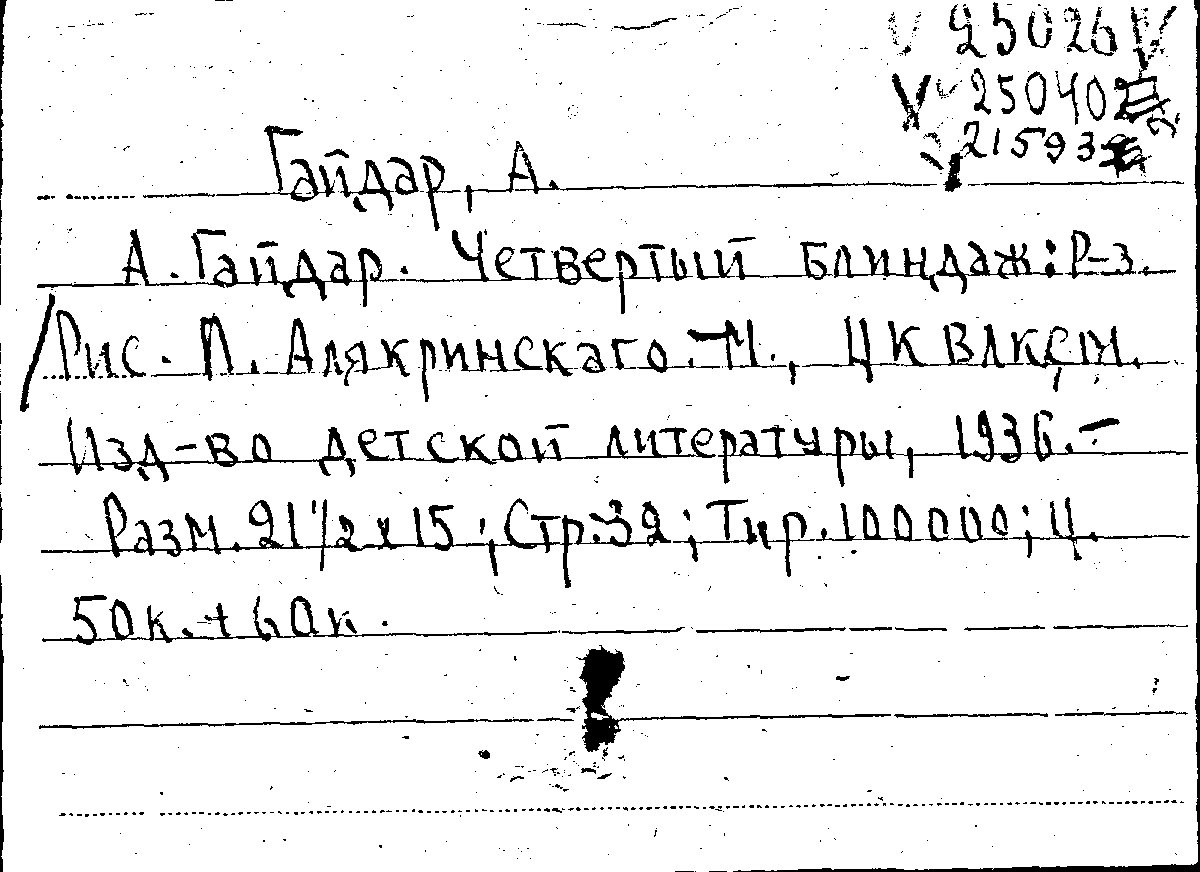 V 25026 V
V 250402
215933
Гайдар, А.
А. Гайдар. Четвертый блиндаж: Р-з.
/Рис. П. Алякринскаго. - М., ЦК ВЛКСМ.
Изд-во детской литературы, 1936. -
Разм. 21 1/2 х 15; Стр: 32; Тир. 100000; Ц.
50к. + 60к.